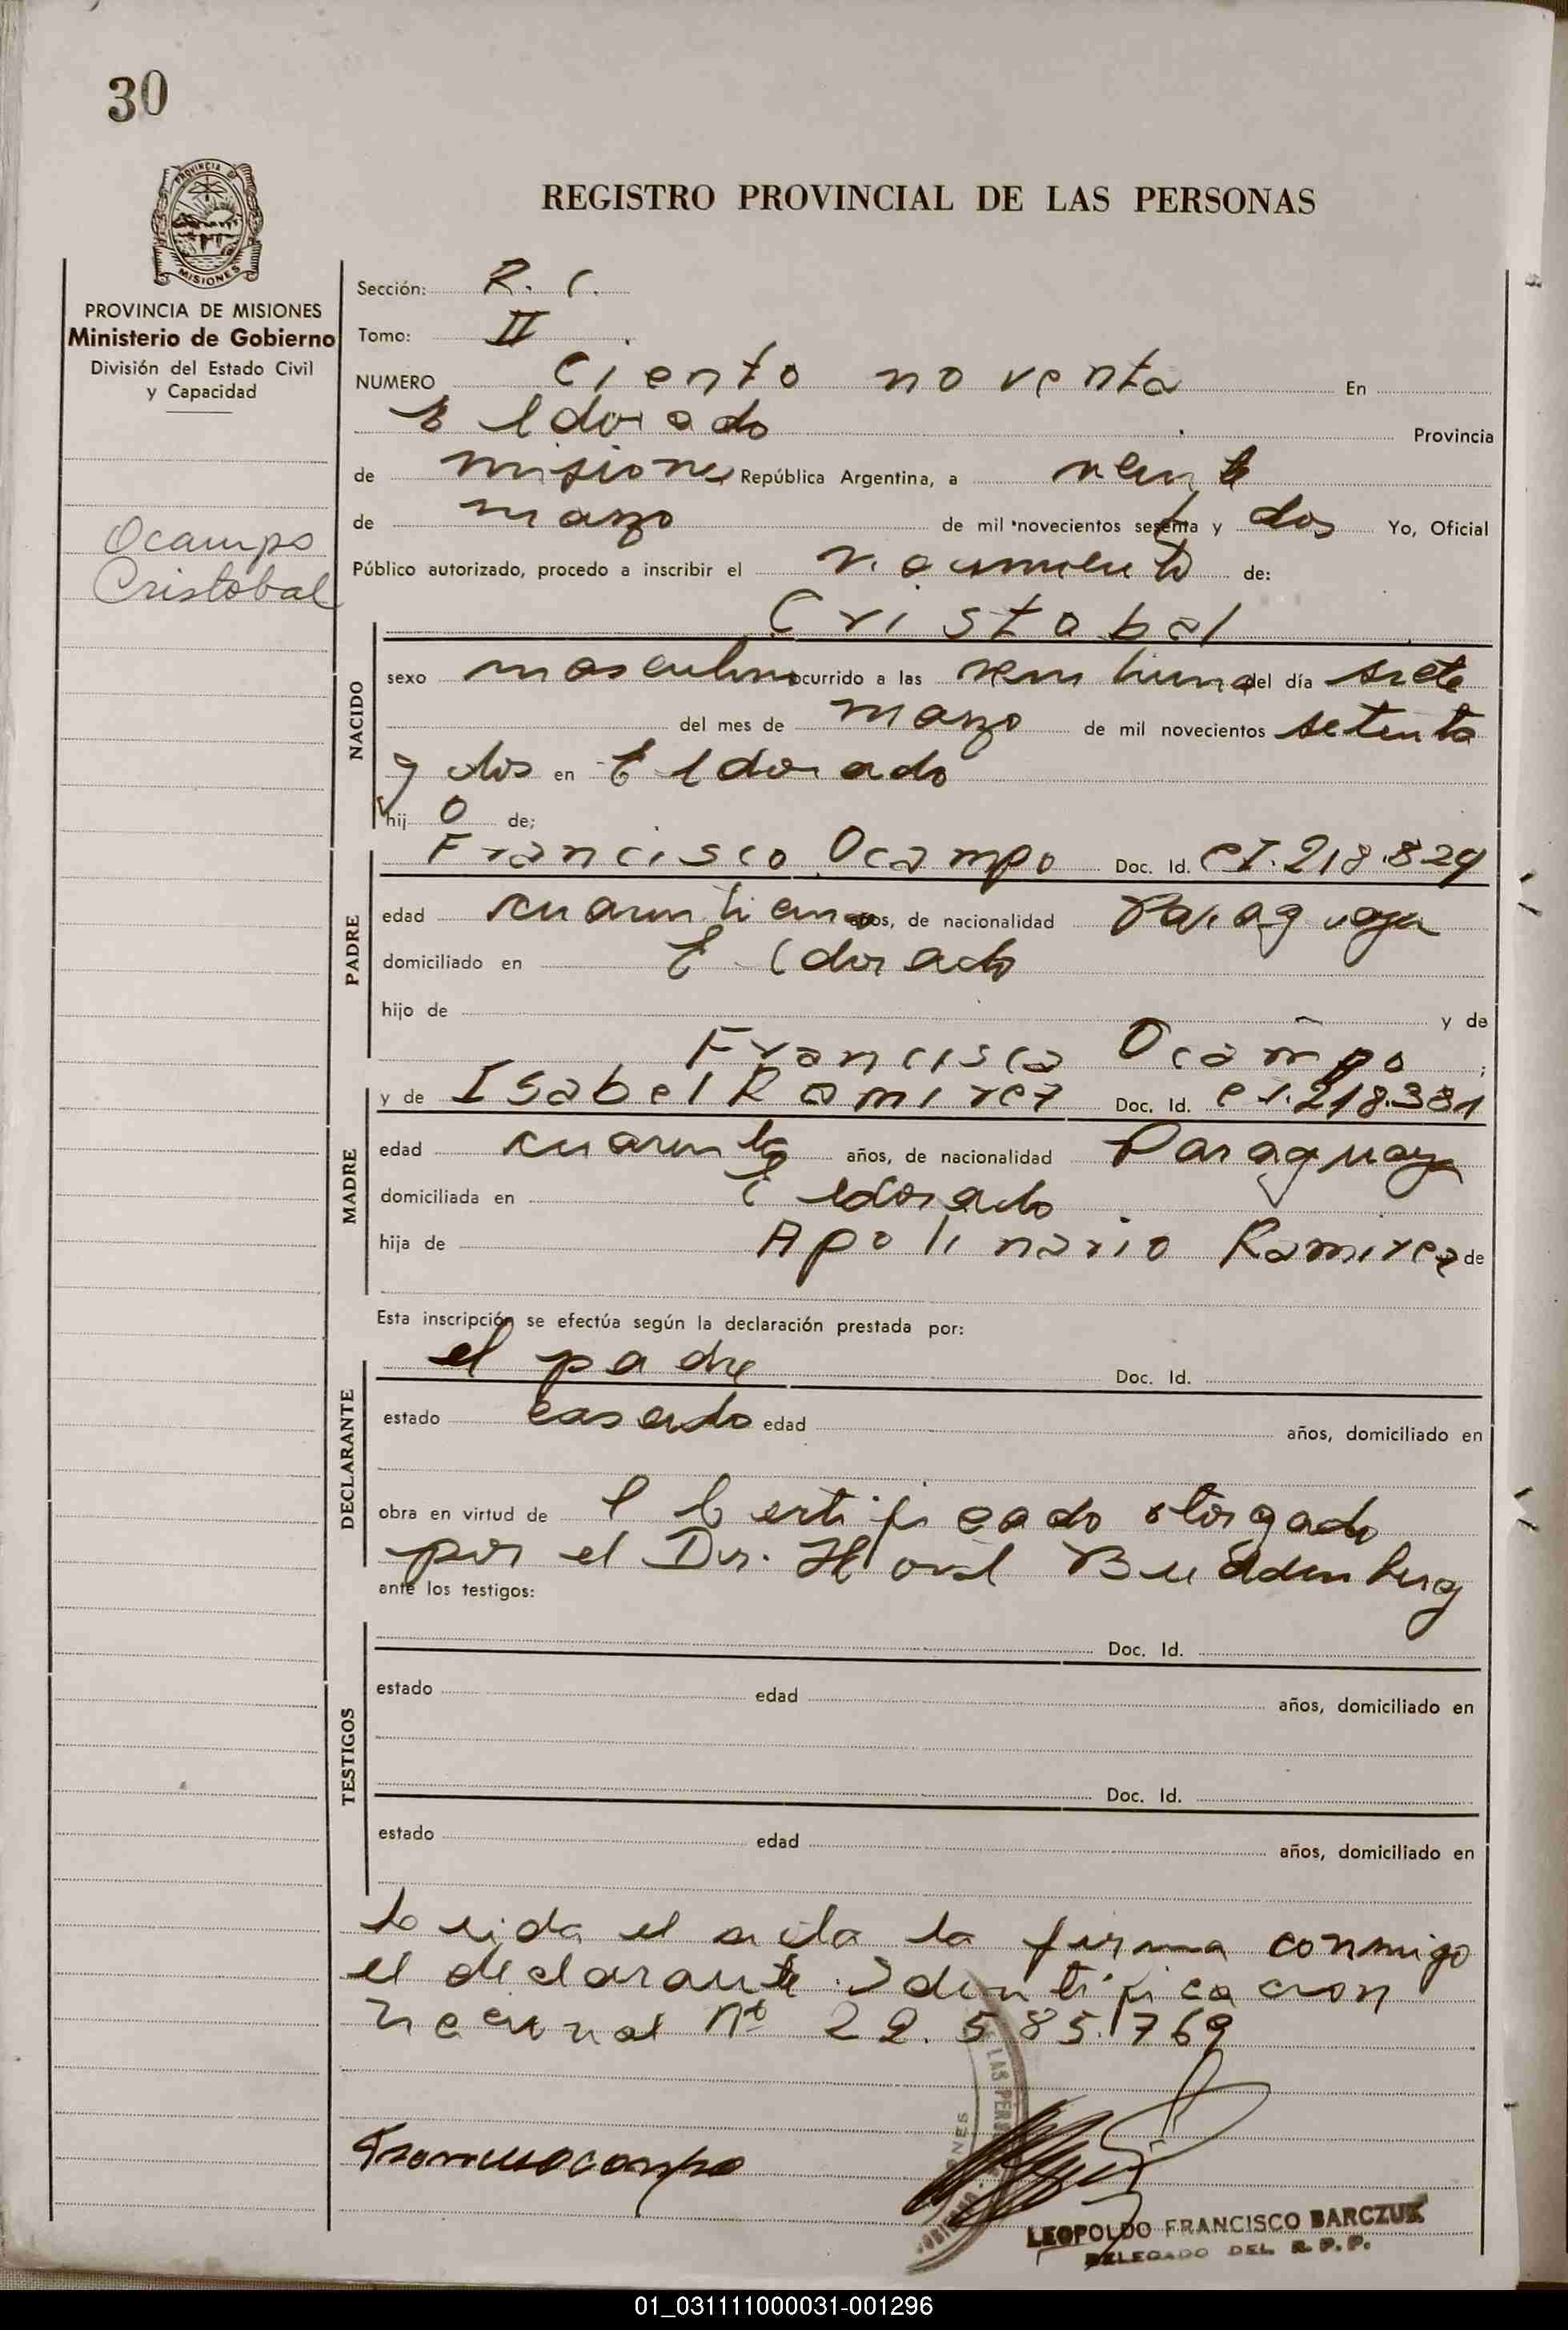 30
PROVINCIA DE
MISIONES
REGISTRO PROVINCIAL DE LAS PERSONAS
PROVINCIA DE MISIONES
Ministerio de Gobierno
División del Estado Civil
y Capacidad
Ocampo
Cristobal
Sección: R. C.
Tomo: II
NUMERO Ciento noventa En
Eldorado Provincia
de misiones República Argentina, a veinte
de marzo de mil novecientos setenta y dos Yo, Oficial
Público autorizado, procedo a inscribir el nacimiento de:
Cristobal
NACIDO
sexo masculino ocurrido a las veintiuna del día siete
del mes de marzo de mil novecientos setenta
y dos en Eldorado
hij o de;
Francisco Ocampo Doc. Id. CI. 218.829
PADRE
edad cuarentiun años, de nacionalidad Paraguaya
domiciliado en Eldorado
hijo de y de
Francisca Ocampo ;
y de Isabel Ramirez Doc. Id. CI. 218.381
MADRE
edad cuarenta años, de nacionalidad Paraguaya
domiciliada en Eldorado
hija de Apolinario Ramirez de
Esta inscripción se efectúa según la declaración prestada por:
el padre Doc. Id.
DECLARANTE
estado casado edad años, domiciliado en
obra en virtud de l Certificado otorgado
por el Dr. Buddenberg
ante los testigos:
Doc. Id.
TESTIGOS
estado edad años, domiciliado en
Doc. Id.
estado edad años, domiciliado en
Leida el acta la firma conmigo
el declarante. Identificacion
nacional Nº 22.585.769
LAS PERS
Francisco Ocampo
LEOPOLDO FRANCISCO BARCZUK
DELEGADO DEL R. P. P.
01_031111000031-001296